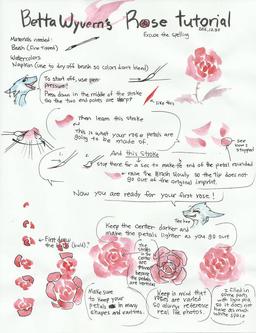 BettaWyvern's Rose tutorial
Excuse the spelling
Materials needed:
Brush (Fine tipped)
Watercolors
Napkin (use to dry off brush so colors don't blend)
To start off, use pen
Pressure!
Press down in the middle of the stroke
So the two end points are sharp
like this
then learn this stroke
This is what your rose petals are
going to be made of.
see
how I
stopped
1.
2.
And this stroke
stop there for a sec to make the end of the petal rounded
raise the brush slowly so the tip does not
go out of the original imprint.
Now you are ready for your first rose!
Keep the center darker and
make the petals lighter as you go out
First draw
the (bud).
The
strokes
in the
center
are
Make sure
to keep your
petals in many
shapes and varities.
Keep in mind that
roses are varied
So always reference
real life photos.
I filled in
some parts
with light pink
so it does not
have as much
white space